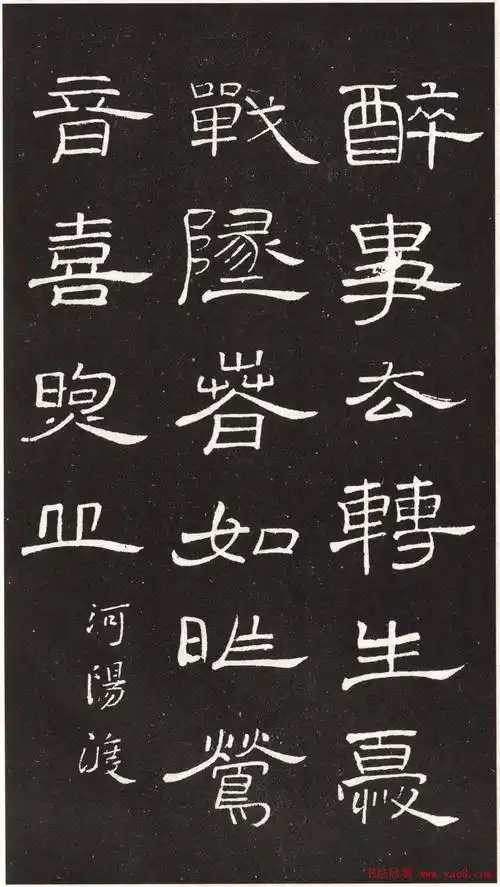 醉事去轉生憂
戰墜春如昨鶯
音喜
河陽渡
书法欣赏 www.yac8.com